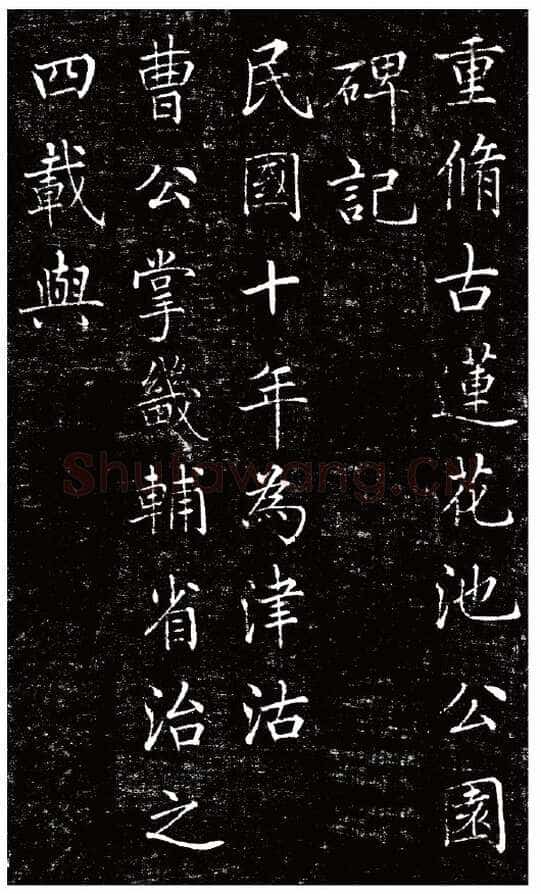 重脩古蓮花池公園
碑記
民國十年為津沽
曹公掌畿輔省治之
四載與
Shufawang.cn